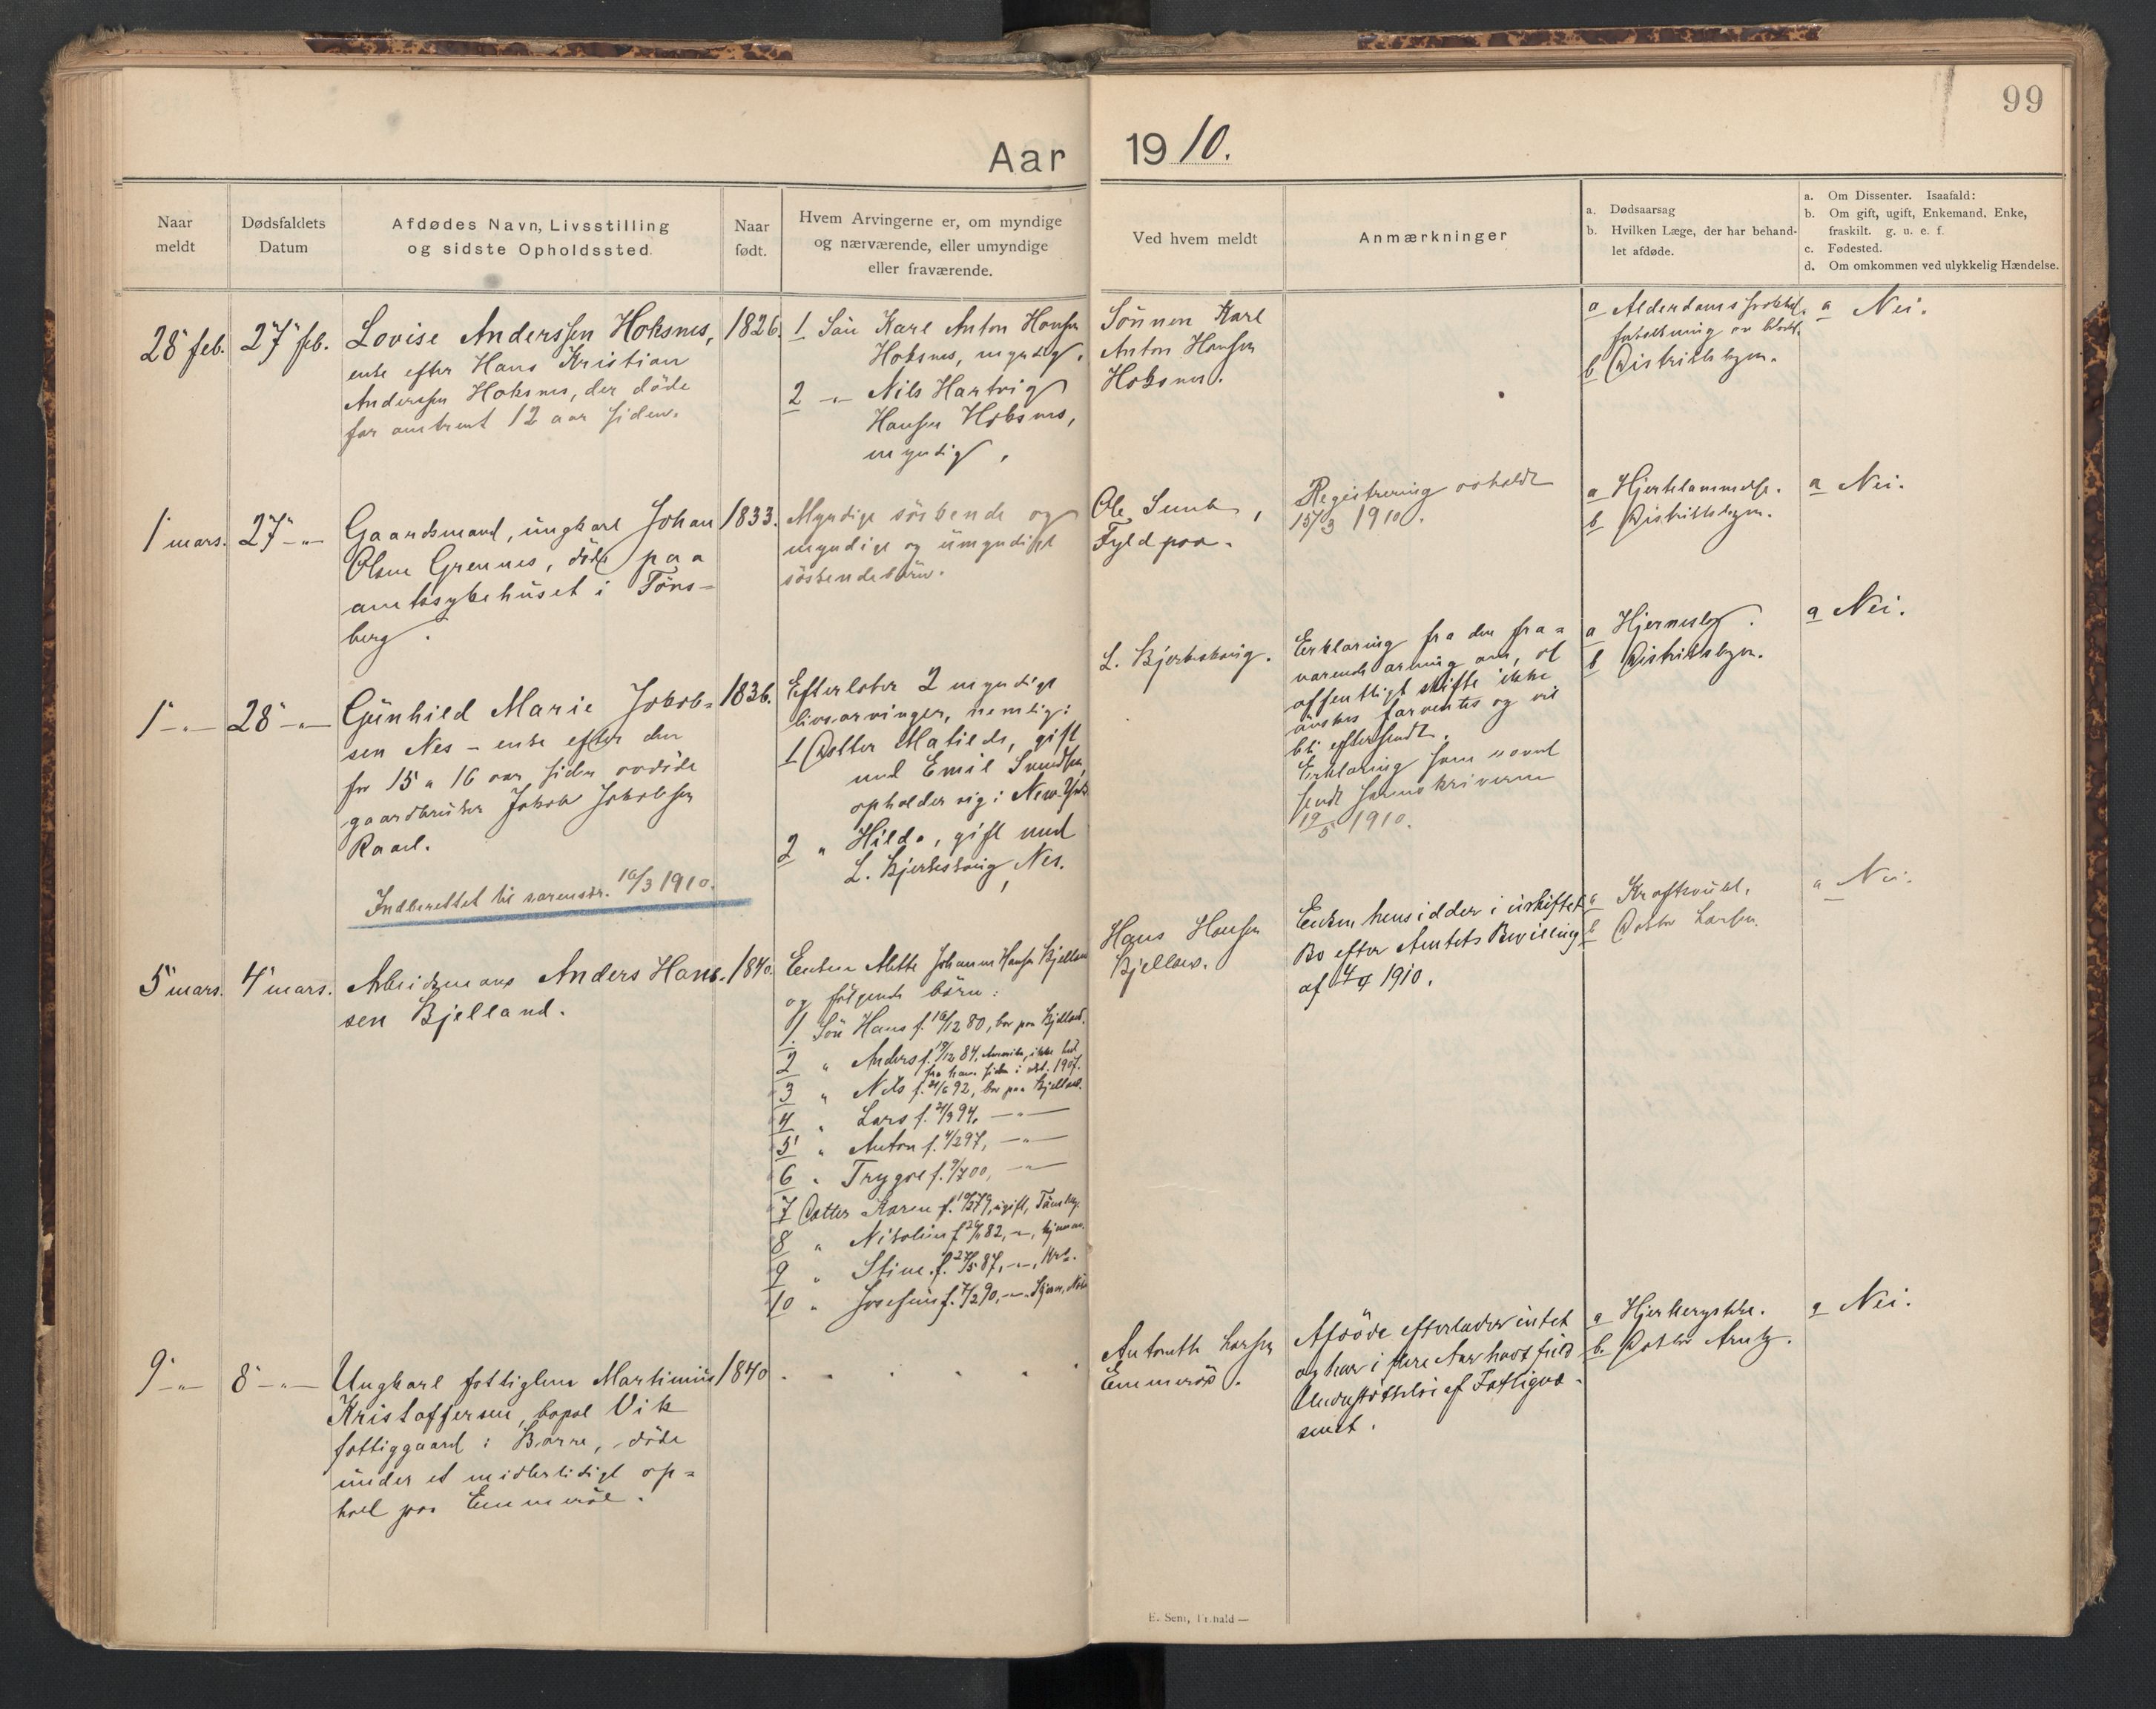 99
Aar 1910.
Naar meldt
Dødsfaldets Datum
Afdødes Navn, Livsstilling
og sidste Opholdssted.
Naar født.
Hvem Arvingerne er, om myndige
og nærværende, eller umyndige
eller fraværende.
Ved hvem meldt
Anmærkninger
a. Dødsaarsag
b. Hvilken Læge, der har behand-
let afdøde.
a. Om Dissenter. Isaafald:
b. Om gift, ugift, Enkemand, Enke,
fraskilt. g. u. e. f.
c. Fødested.
d. Om omkommen ved ulykkelig Hændelse.
28 feb.
27 feb.
Lovise Anderssen Hoksnes,
enke efter Hans Kristian
Anderssen Hoksnes, der døde
for omtrent 12 aar siden.
1826.
1 Søn Karl Anton Hansen
Hoksnes, myndig.
2 -"- Nils Hartvig
Hansen Hoksnes,
myndig.
Sønnen Karl
Anton Hansen
Hoksnes.
a Alderdoms
b Distriktslægen.
a Nei.
1 mars.
27 -"-
Gaardmand, ungkarl Johan
Olsen Grennes, døde paa
amtssygehuset i Tøns-
berg.
1833.
Myndige søskende og
myndige og umyndige
søskendebørn.
Ole Sunde,
Fyldpaa.
Registrering avholdt
15/3 1910.
a Hjertelammelse.
b Distriktslægen.
a Nei.
1 -"-
28 -"-
Gunhild Marie Jakob-
sen Nes - enke efter den
for 15 a 16 aar siden avdøde
gaardbruker Jakob Jakobsen
Rael.
Indberettet til sorenskr. 10/3 1910.
1836.
Efterlater 2 myndige
livsarvinger, nemlig:
1 Datter Matilde, gift
med Emil Svendsen,
opholder sig i New-York
2 " Hilda, gift med
L. Bjerkeskaug, Nes.
L. Bjerkeskaug.
Erklæring fra den fra-
værende arving om, at
offentligt skifte ikke
ønskes forventes og vil
bli eftersendt.
Erklæring som nævnt
sendt sorenskriveren
19/5 1910.
a Hjerneslag.
b Distriktslægen.
a Nei.
5 mars.
4 mars.
Arbeidsmand Anders Han-
sen Bjelland.
1840.
Enken Mette Johanne Hansen Bjelland
og følgende børn:
1. Søn Hans f. 10/12 80, bor paa Bjelland.
2 " Anders f. 19/12 84, Amerika, ikke hørt
fra ham siden i okt. 1907.
3 " Nils f. 21/6 92, bor paa Bjelland.
4 " Lars f. 21/9 94, -"-
5 " Anton f. 4/2 97, -"-
6 " Trygve f. 9/7 00, -"-
7 Datter Karen f. 10/3 79, ugift, Tønsberg.
8 " Nikoline f. 82, -"-,
9 " Stine f. 27/5 87, -"-,
10 " Josefine f. 7/2 90, -"-
Hans Hansen
Bjelland.
Enken hensidder i uskiftet
Bo efter Amtets Bevilling
af 4/4 1910.
a Kræftsvulst.
b Doktor Larsen.
a Nei.
9 -"-
8 -"-
Ungkarl fattiglem Martinius
Kristoffersen, bopæl Vik
fattiggaard i Borre, døde
under et midlertidigt op-
hold paa Emmerød.
1840
Antonette Larsen
Emmerød.
Afdøde efterlader intet
og har i flere Aar havt fuld
Understøttelse af Fattigvæ-
senet.
a Hjertesygdom.
b. Doktor Arntz.
a Nei.